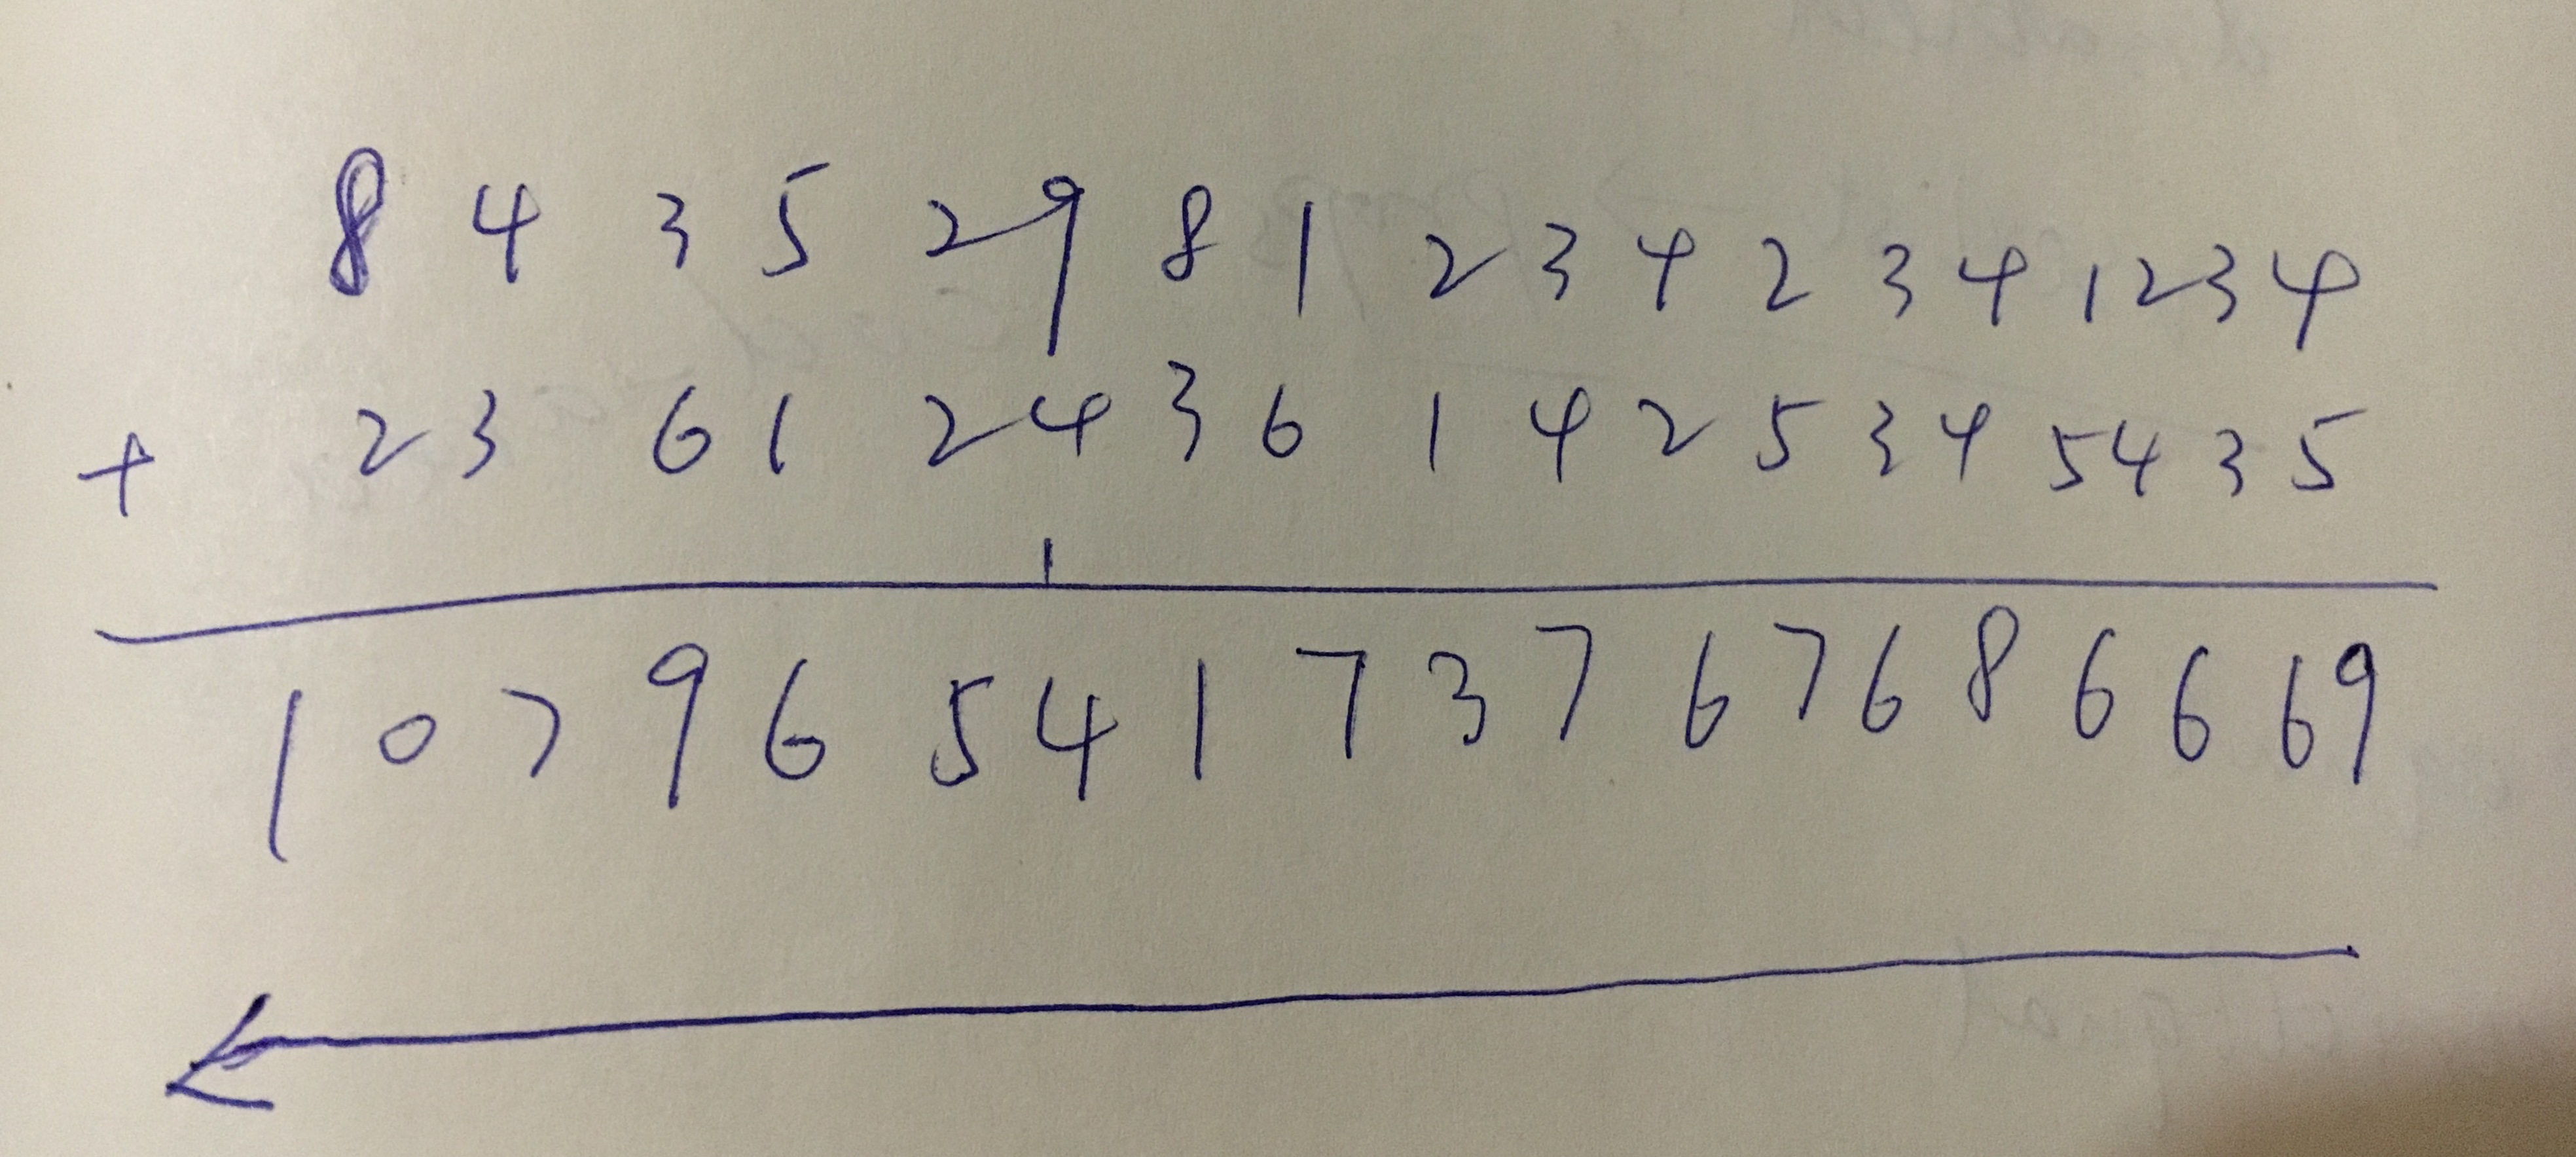 8 4 3 5 2 9 8 1 2 3 4 2 3 4 1 2 3 4
+ 2 3 6 1 2 4 3 6 1 4 2 5 3 4 5 4 3 5
1
1 0 7 9 6 5 4 1 7 3 7 6 7 6 8 6 6 6 9